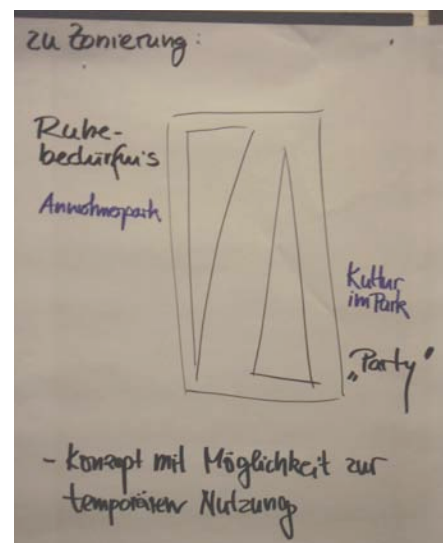 zu Zonierung:
Ruhe-
bedürfnis
Anwohnerpark
Kultur
im Park
„Party"
- Konzept mit Möglichkeit zur
temporären Nutzung